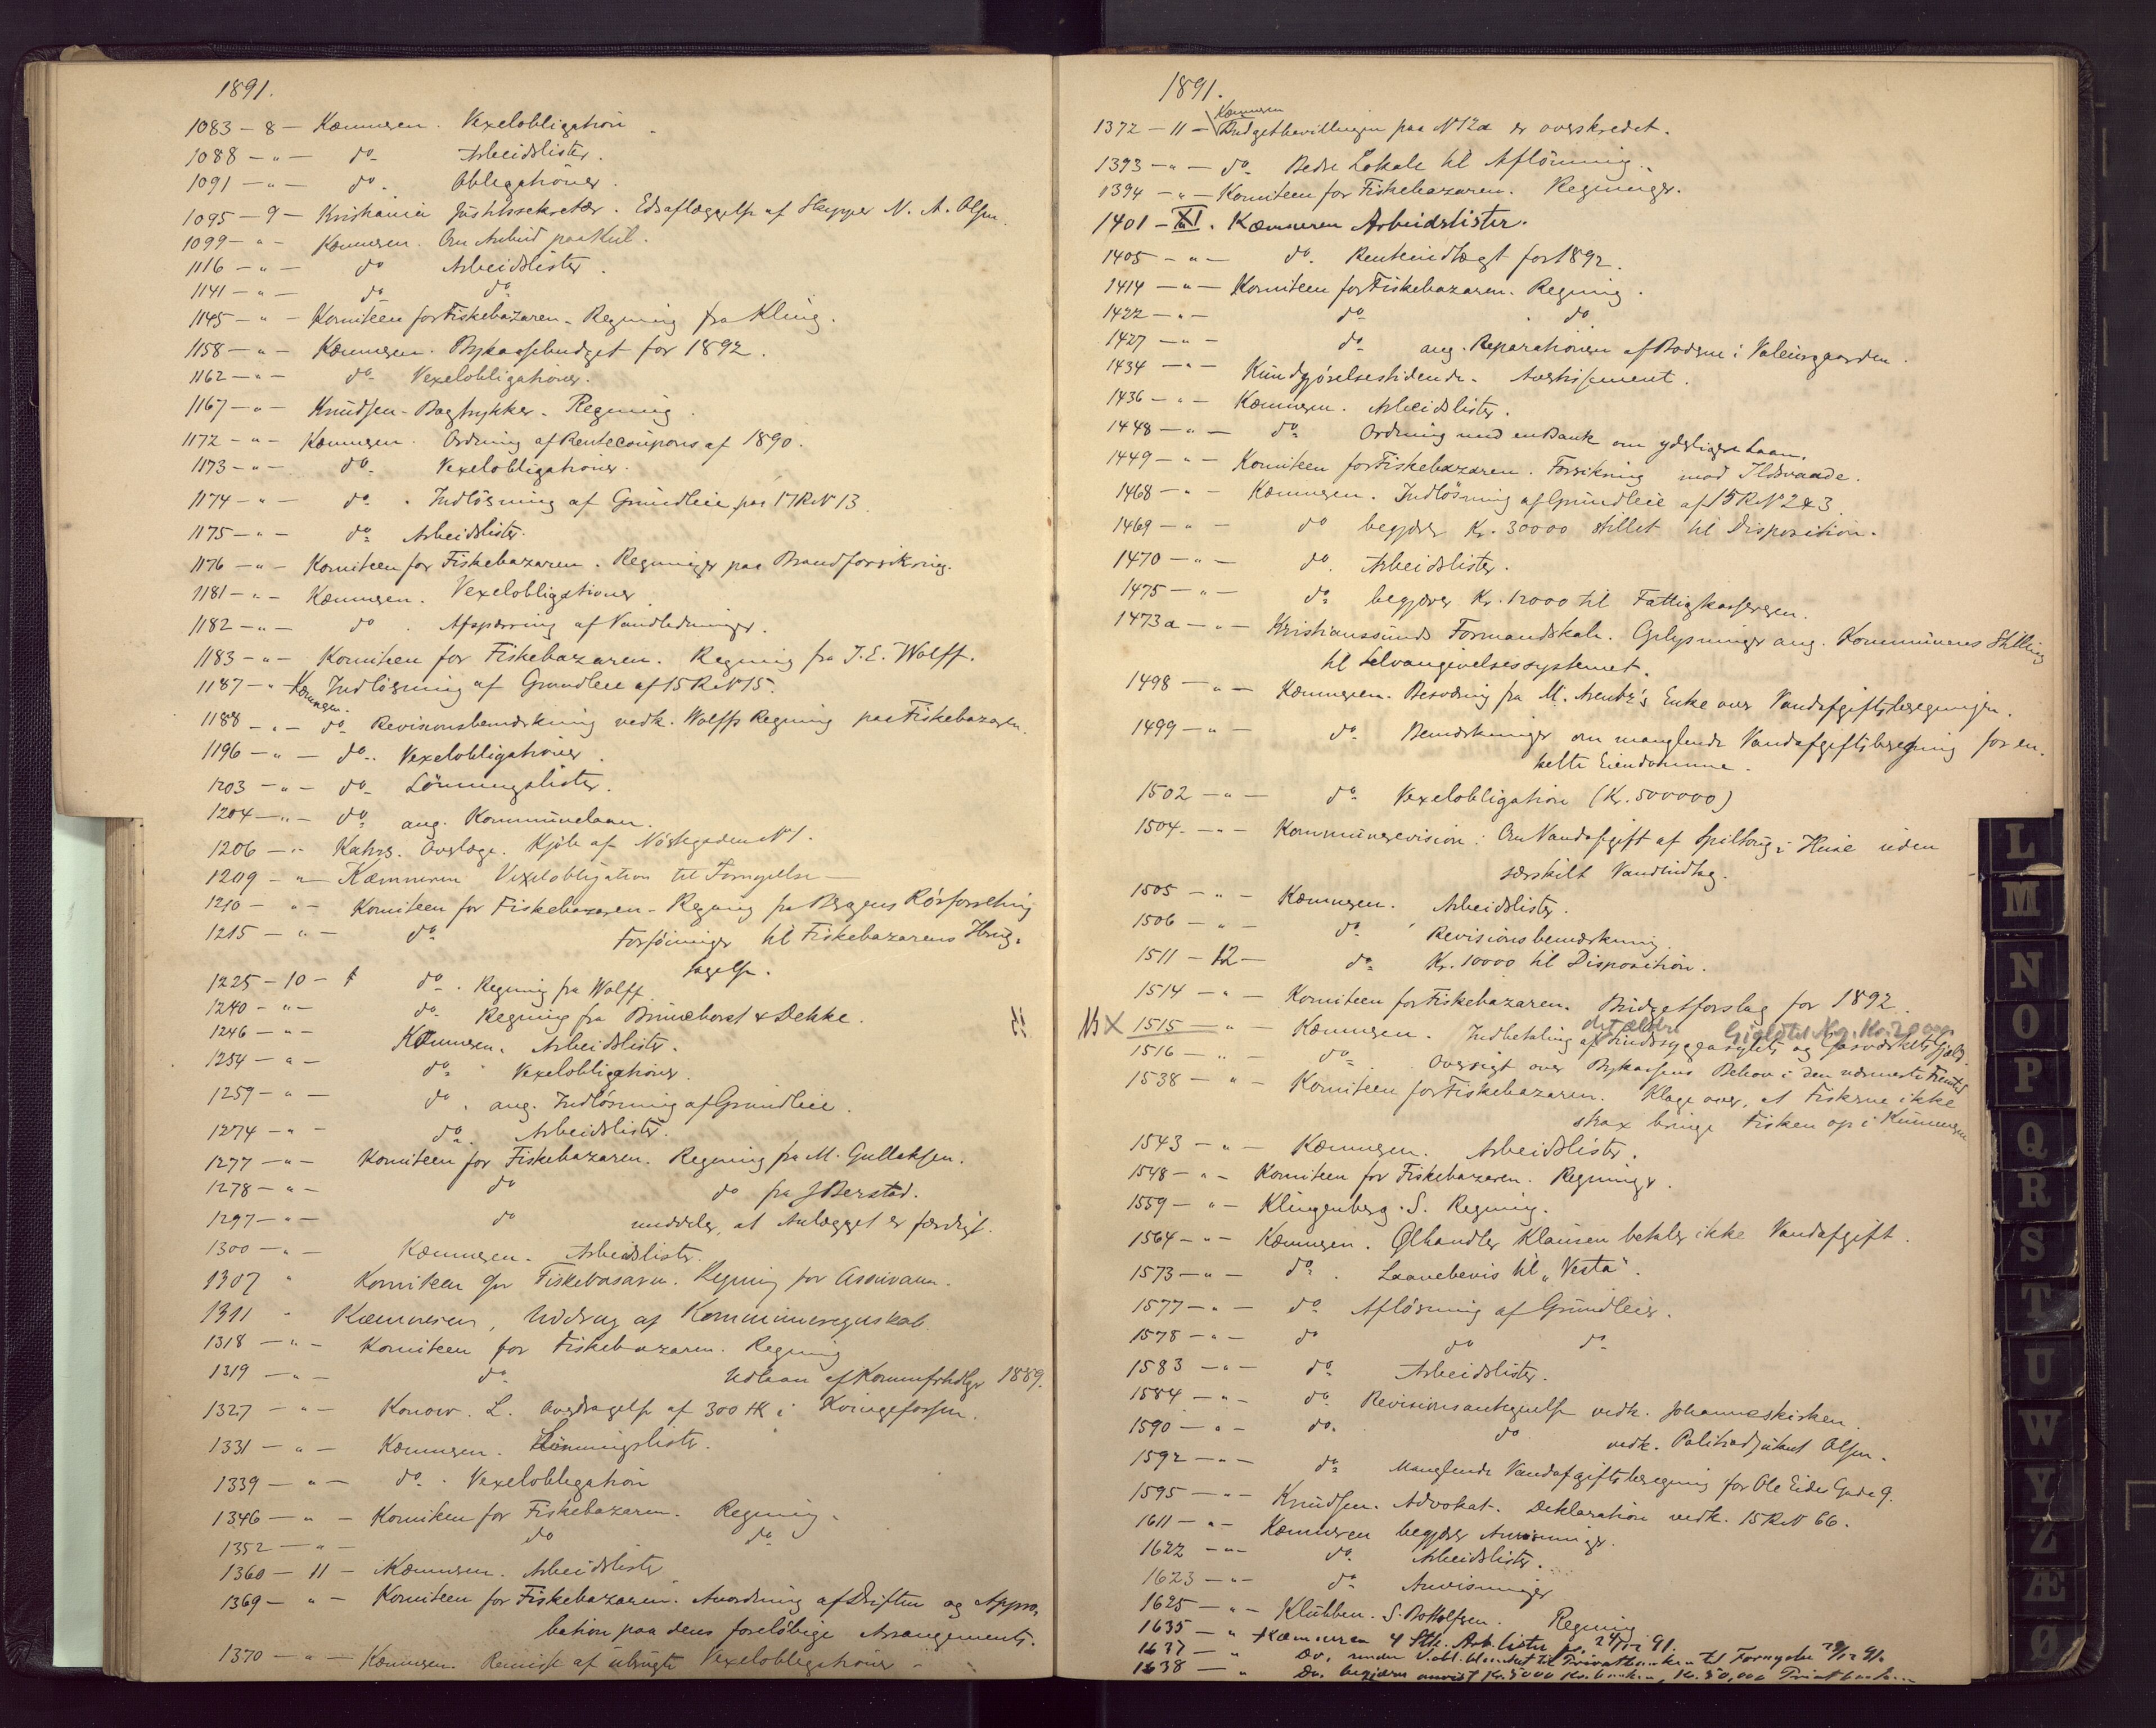 1891.
1083 - 8 - Kæmneren. Vexelobligation
1088 - " - do. Arbeidslister.
1091 - " - do. Obligationer.
1095 - 9 - Kristiania Justitssekretær. Edsaflæggelse af Skipper N. A. Olsen.
1099 - " - Kæmneren. Om Anbud paa Kul.
1116 - " - do Arbeidslister.
1141 - " - do do
1145 - " - Komiteen for Fiskebazaren. Regning fra Kling.
1158 - " - Kæmneren. Bykassebudget for 1892.
1162 - " - do. Vexelobligationer.
1167 - " - Knudsen - Bogtrykker. Regning.
1172 - " - Kæmneren. Ordning af Rentecoupons af 1890.
1173 - " - do. Vexelobligationer.
1174 - " - do. Indløsning af Grundleie paa 17 R N 13.
1175 - " - do. Arbeidslister.
1176 - " - Komiteen for Fiskebazaren. Regninger paa Brandforsikring.
1181 - " - Kæmneren. Vexelobligationer
1182 - " - do. Afspærring af Vandledninger.
1183 - " - Komiteen for Fiskebazaren. Regning fra J. E. Wolff.
1187 - " Kæmneren. Indløsning af Grundleie af 15 R N 15.
1188 - " - do. Revisionsbemærkning vedk. Wolffs Regning paa Fiskebazaren.
1196 - " - do. Vexelobligationer.
1203 - " - do. Lønningslister.
1204 - " - do. ang. Kommunelaan.
1206 - " Kahrs. Overlæge. Kjøb af Nøstegaden N 1.
1209 - " - Kæmneren Vexelobligation til Fornyelse -
1210 - " - Komiteen for Fiskebazaren - Regning fra Bergens Rørforretning
1215 - " - do. Forføininger til Fiskebazarens Ibrug-
tagelse.
1225 - 10 - do. Regning fra Wolff
1240 - " - do. Regning fra Brunchorst & Dekke.
1246 - " - Kæmneren. Arbeidslister.
1254 - " - do. Vexelobligationer.
1259 - " - do. ang. Indløsning af Grundleie.
1274 - " - do. Arbeidslister.
1277 - " - Komiteen for Fiskebazaren. Regning fra M. Gullaksen.
1278 - " - do do fra J Berstad.
1297 - " - do meddeler, at Anlægget er færdigt.
1300 - " - Kæmneren. Arbeidslister.
1307 " Komiteen for Fiskebasaren. Regning for
1311 " Kæmneren, Uddrag af Kommuneregnskab
1318 - " - Komiteen for Fiskebazaren. Regning
1319 - " - do. Udlaan af Kommfrhdlgr 1889.
1327 - " - Konow. L. Overdragelse af 300 HK i Kvingefossen.
1331 - " - Kæmneren. Lønningsliste.
1339 - " - do. Vexelobligation
1346 - " - Komiteen for Fiskebazaren. Regning.
1352 - " - do do
1360 - 11 - Kæmneren. Arbeidslister
1369 - " - Komiteen for Fiskebazaren. Anordning af Driften og Appro-
bation paa dens foreløbige Arrangements.
1370 - " - Kæmneren. Remisse af ubrugte Vexelobligationer -
1891.
Kæmneren
1372 - 11 - Budgetbevillingen paa N 12a er overskredet.
1393 - " - do. Bedre Lokale til Aflønning.
1394 - " - Komiteen for Fiskebazaren. Regninger.
1401 - XI. Kæmneren Arbeidslister.
1405 - " - do. Renteindtægt for 1892.
1414 - " - Komiteen for Fiskebazaren. Regning.
1422 - " - do. do
1427 - " - do ang. Reparationen af Boderne i Valeurgaarden.
1434 - " - Kundgjørelsestidende. Avertissement.
1436 - " - Kæmneren. Arbeidslister.
1448 - " - do. Ordning med en Bank om yderligere Laan.
1449 - " - Komiteen for Fiskebazaren. Forsikring mod Ildsvaade.
1468 - " - Kæmneren. Indløsning af Grundleie af 15 R N 2 & 3.
1469 - " - do begjærer Kr. 30000 stillet til Disposition.
1470 - " - do. Arbeidslister.
1475 - " - do. begjærer Kr. 12000 til Fattigkassereren.
1473a - " - Kristianssunds Formandskab. Oplysninger ang. Kommunens Stilling
til Selvangivelsessystemet.
1498 - " - Kæmneren. Besværing fra M. Arentz's Enke over Vandafgiftsberegningen.
1499 - " - do. Bemærkninger om manglende Vandafgiftsberegning for en-
kelte Eiendomme.
1502 - " - do. Vexelobligation (Kr. 500000)
1504 - " - Kommunerevision. Om Vandafgift af Spiltoug i Huse uden
særskilt Vandindtag.
1505 - " - Kæmneren. Arbeidslister.
1506 - " - do. Revisionsbemærkning.
1511 - 12 - do. Kr. 10000 til Disposition.
1514 - " - Komiteen for Fiskebazaren. Budgetforslag for 1892.
det ældre Gjæld til
NB X 1515 - " - Kæmneren. Indbetaling af Sindssygeasylets og Gasværkets Gjæld.
1516 - " - do. Oversigt over Bykassens Behov i den nærmeste Fremtid
1538 - " - Komiteen for Fiskebazaren. Klage over, at Fiskerne ikke
strax bringe Fisken op i Kummerne
1543 - " - Kæmneren. Arbeidslister.
1548 - " - Komiteen for Fiskebazaren. Regninger.
1559 - " - Klingenberg. S. Regning.
1564 - " - Kæmneren. Ølhandler Klausen betaler ikke Vandafgift.
1573 - " - do. Laanebevis til "Vesta".
1577 - " - do Afløsning af Grundleier.
1578 - " - do do do
1583 - " - do Arbeidslister.
1584 - " - do. Revisionsantegnelse vedk. Johanneskirken.
1590 - " - do. do vedk. Politiadjutant Olsen.
1592 - " - do. Manglende Vandafgiftsberegning for Ole Eides Gade 9.
1595 - " - Knudsen. Advokat. Deklaration vedk. 15 R N 66.
1611 - " - Kæmneren begjærer Anvisninger.
1622 - " - do. Arbeidslister.
1623 - " - do. Anvisninger
1625 - " - Klubben. S. Bottolfsen. Regning
1635 - " Kæmneren 4 Stk. Arb. lister pr. 24/12 91.
1637 - " Do. til Privatbanken til Fornyelse 29/12 91.
1638 - " Do. begjærer anvist Kr. 5000
L
M
N
O
P
Q
R
S
T
U
W
Y
Z
Æ
Ø